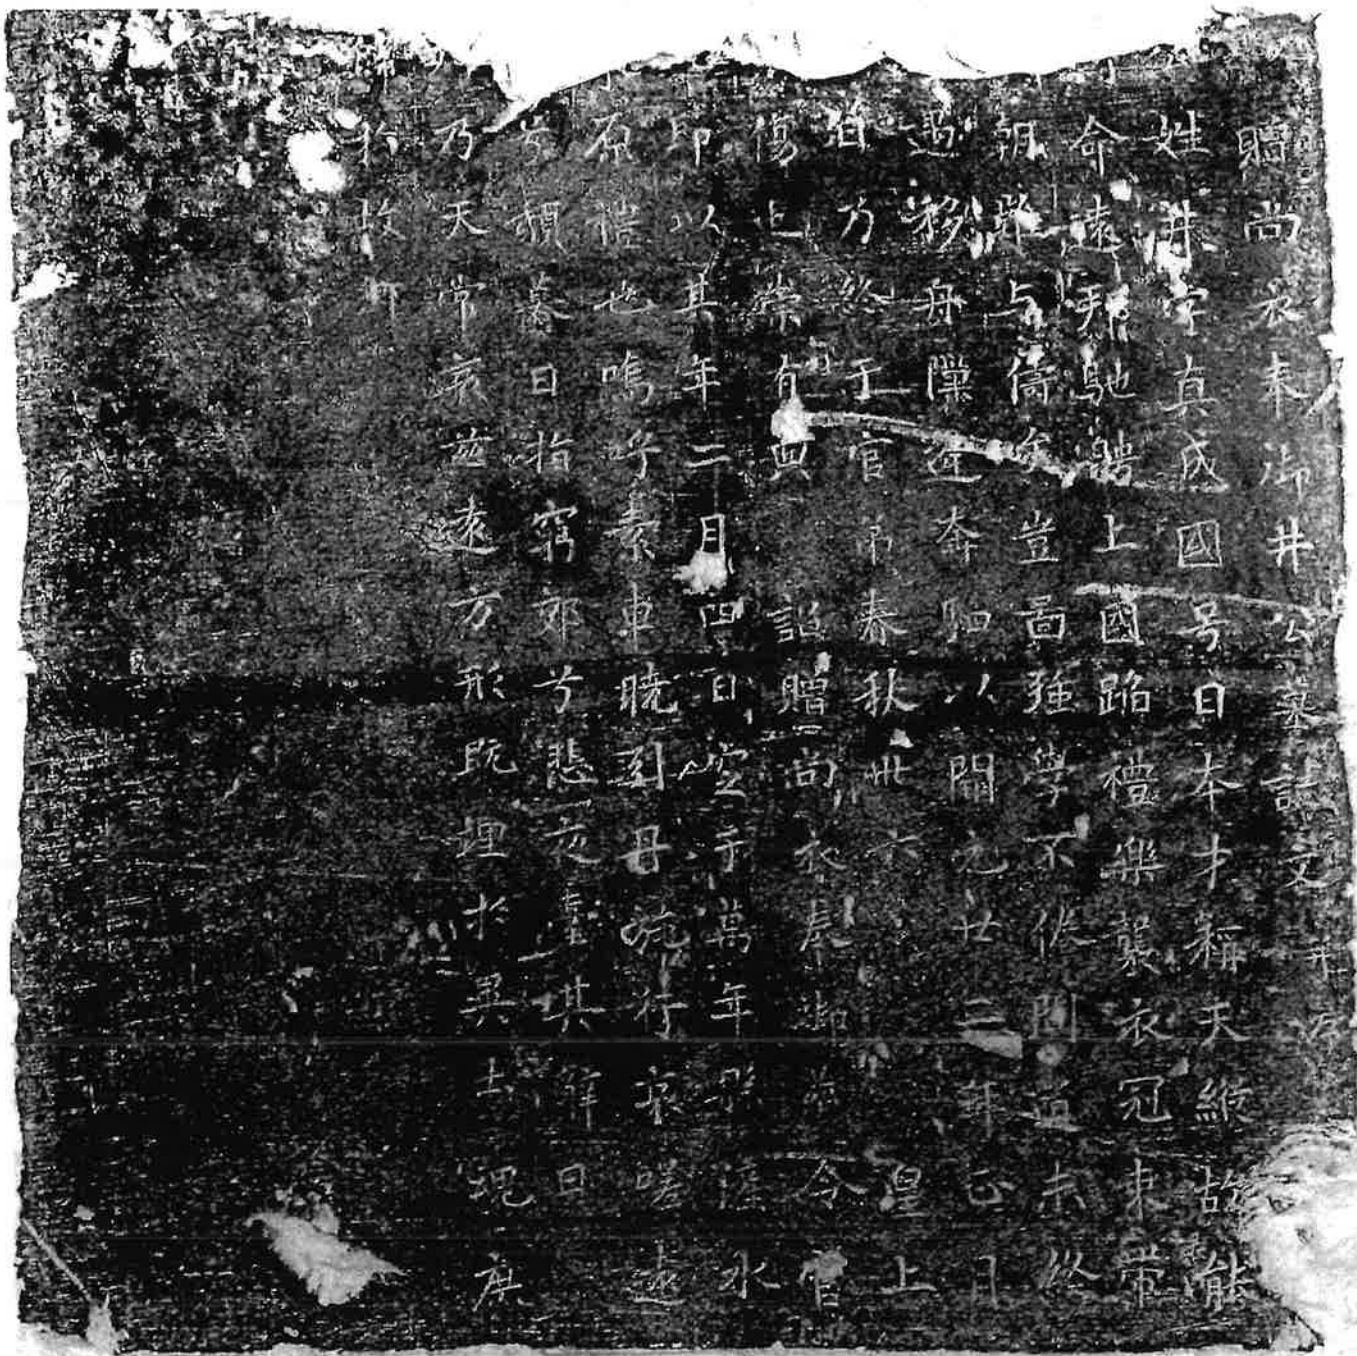 贈尚衣奉御井公墓誌文并序
姓井字真成國号日本才稱天縱故能
命遠邦馳騁上國蹈禮樂襲衣冠束帶
朝難与儔矣豈圖強學不倦問道未終
遇移舟隙逢奔駟以開元廿二年正月
日乃終于官弟春秋卅六皇上
傷追崇有典詔贈尚衣奉御葬令官
即以其年二月四日窆于萬年縣滻水
原禮也嗚呼素車曉引丹旐行哀嗟遠
兮頹暮日指窮郊兮悲夜臺其辭曰
乃天常哀茲遠方形既埋於異土魂庶
於故